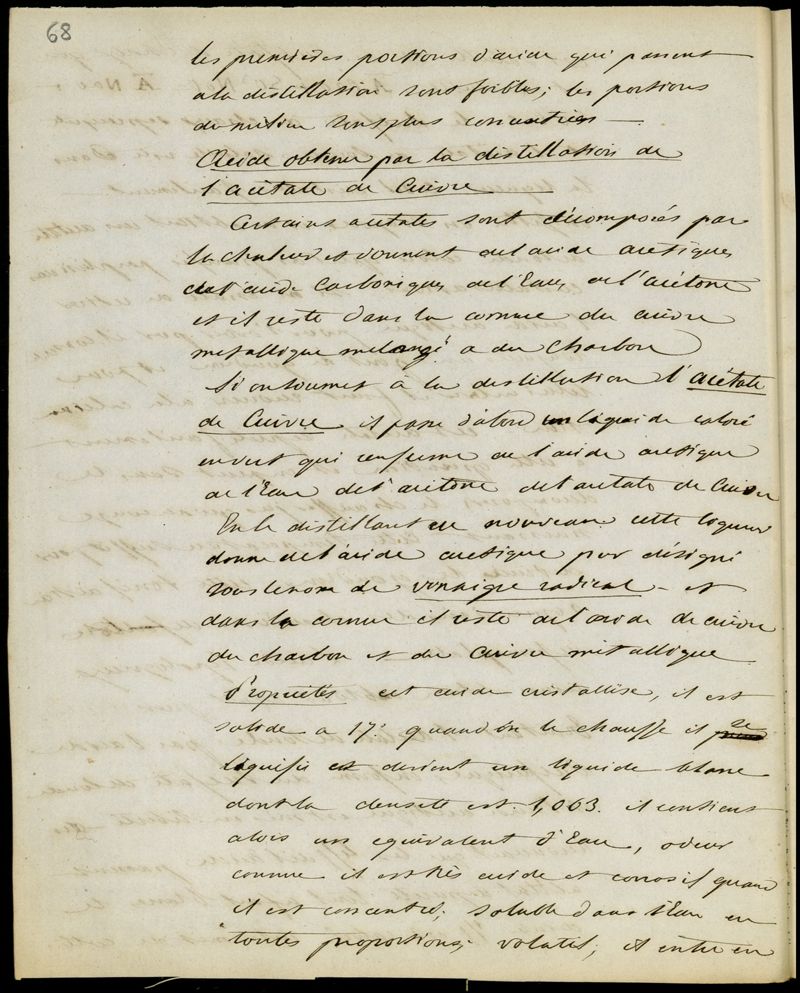 68
les premières portions d'acide qui passent
a la distillation sont foibles; les portions
du milieu sont plus concentrées —
Acide obtenu par la distillation de
l'acètate de Cuivre
Certains acetates sont décomposés par
la chaleur et donnent del'acide acetiques
del'acide Carboniques del'Eau, del'acétone
et il reste dans la cornue du cuivre
metallique melangé a du Charbon
Si on soumet à la distillation l'acétate
de Cuivre il passe d'abord un liquide coloré
en vert qui renferme de l'acide acetique
de l'Eau del'acètone del'acetate de Cuivre
En le distillant de nouveau cette liqueur
donne del'acide acetique pur désigné
sous lenom de vinaigre radical — et
dans la cornue il reste del'oxide de cuivre
du charbon et du Cuivre métallique
Propriétés cet acide cristallise, il est
solide a 17° quand on le chauffe il se
liquifie et devient un liquide blanc
dont la densité est 1,063. il contient
alors un equivalent d'Eau, odeur
connue il est très acide et corrosif quand
il est concentré; soluble dans l'Eau en
toutes proportions; volatil, il entre en